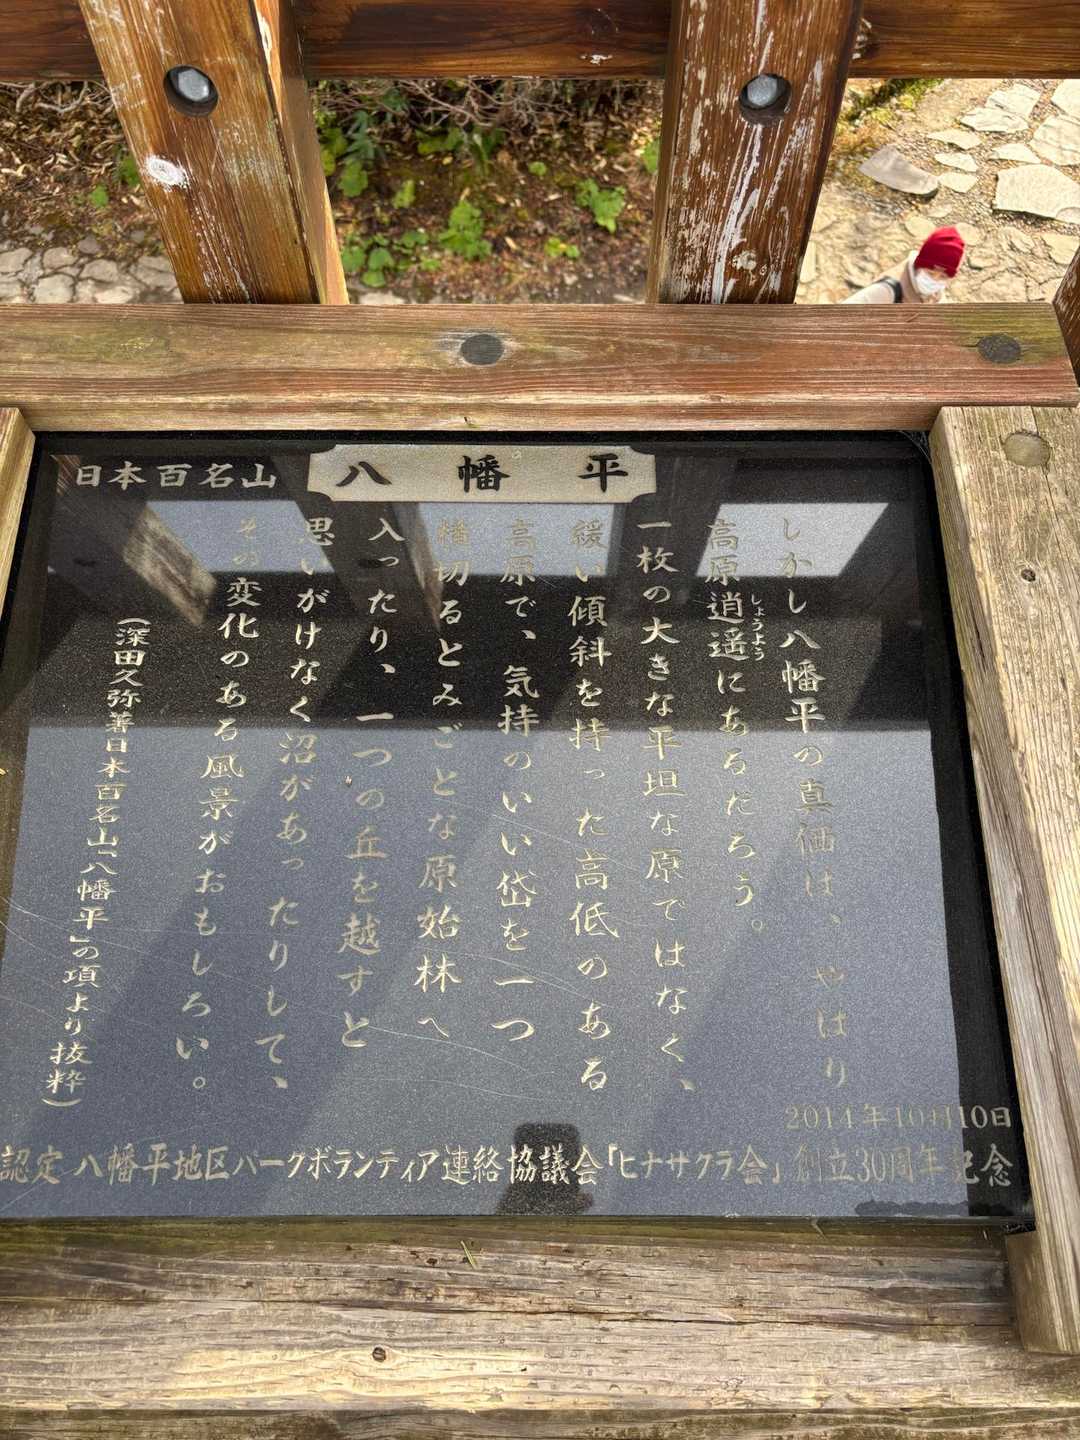 日本百名山
八幡平
しかし八幡平の真価は、やはり
高原逍遥にあるだろう。
しょうよう
一枚の大きな平坦な原ではなく、
緩い傾斜を持った高低のある
高原で、気持のいい岱を一つ
横切るとみごとな原始林へ
入ったり、一つの丘を越すと
思いがけなく沼があったりして、
その変化のある風景がおもしろい。
(深田久弥著日本百名山「八幡平」の項より抜粋)
2014年10月10日
認定 八幡平地区パークボランティア連絡協議会「ヒナザクラ会」創立30周年記念